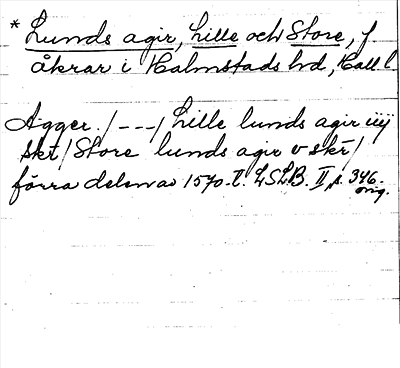 * Lunds agir, Lille och Store, f.
åkrar i Halmstads hd, Hall. l.
Agger. / --- / Lille lunds agir iiij
skt / Store lunds agir v skt /
förra delen av 1570-t. LSLB. II, s. 346.
orig.